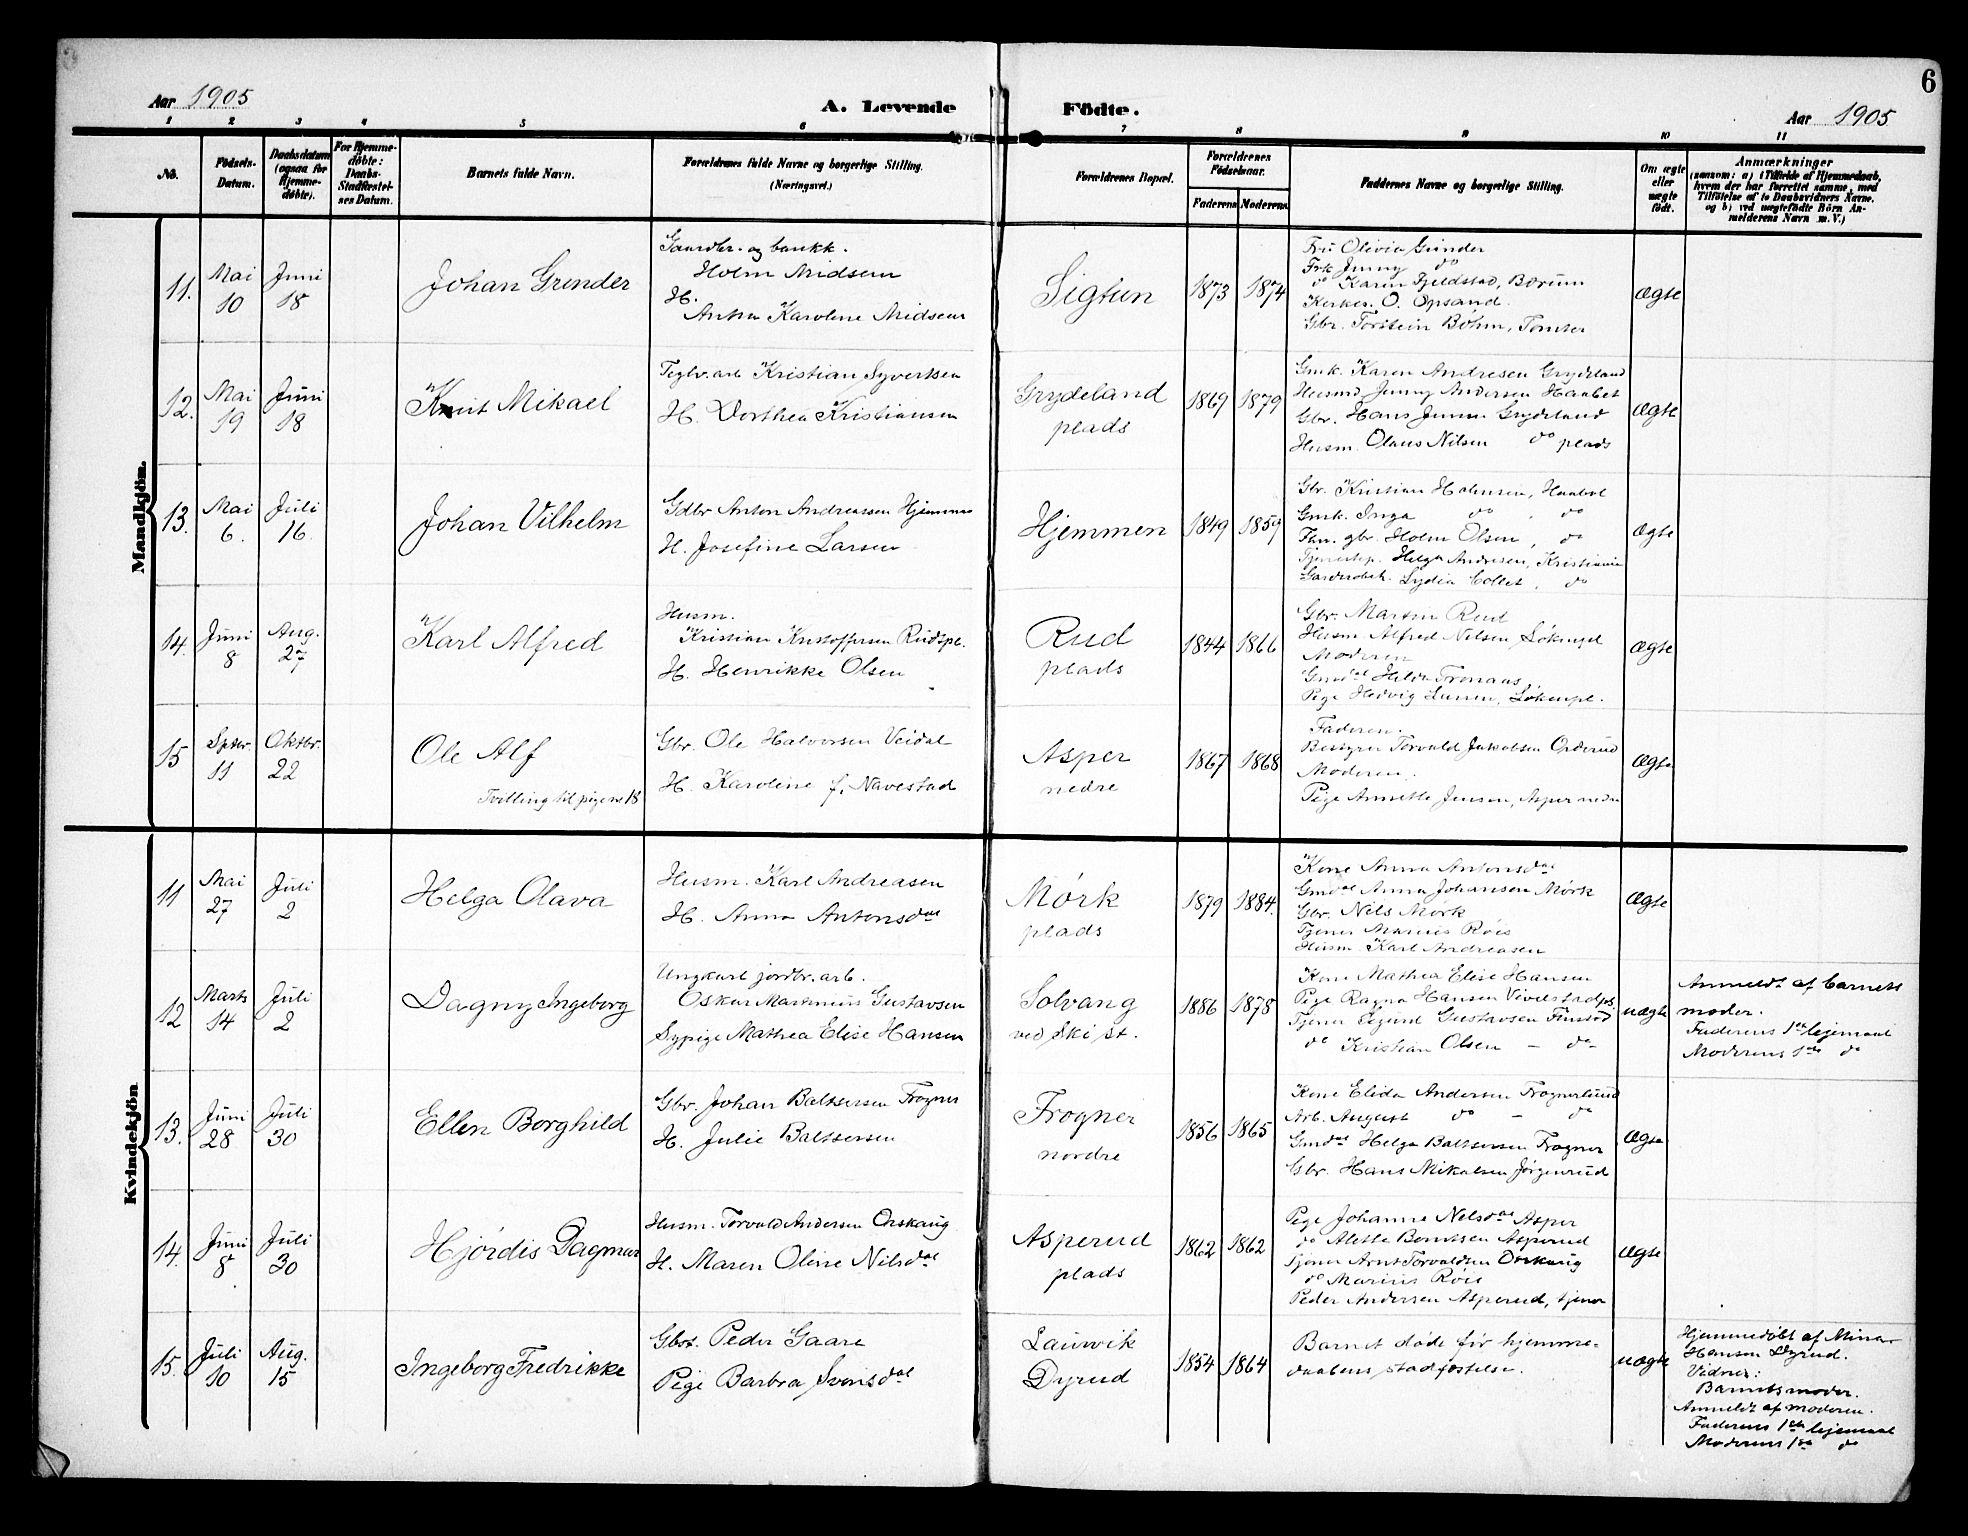 6
Aar 1905
A. Levende
Födte.
Aar 1905
1 2 3 4 5 6 7 8 9 10 11
No.
Födsels-
Datum.
Daabsdatum
(ogsaa for
Hjemme-
döbte).
For Hjemme-
döbte:
Daabs-
Stadfæstel-
ses Datum.
Barnets fulde Navn.
Forældrenes fulde Navne og borgerlige Stilling.
(Næringsvei.)
Forældrenes Bopæl.
Forældrenes
Födselsaar.
Faderens Moderens
Faddernes Navne og borgerlige Stilling.
Om ægte
eller
uægte
födt.
Anmærkninger
(saasom: a) i Tilfælde af Hjemmedaab,
hvem der har forrettet samme, med
Tilföielse af to Daabsvidners Navne,
og b) ved uægtefödte Börn An-
melderens Navn m. V.)
Mandkjön.
11.
Mai
10
Juni
18
Johan Grinder
Gaardbr. og bankk.
Holm Midsem
H.
Anna Karoline Midsem
Sigtun
1873 1874
Fru Olivia Grinder
Frk Jenny do
do Karen Fjeldstad, Borum
Kirkes. O. Opsand.
Gbr. Torstein Bøhm, Tomter
Ægte
12.
Mai
19
Juni
18
Knut Mikael
Teglv. arb Kristian Syvertsen
H. Dorthea Kristiansen
Grydeland
plads
1869 1879
Gmk. Karen Andresen Grydeland
Husmd Jenny Andersen Haabet
Gbr. Hans Jensen Grydeland
Husm. Olaus Nilsen do plads
Ægte
13.
Mai
6.
Juli
16.
Johan Vilhelm
Gdbr Anton Andreassen Hjemmen
H. Josefine Larsen
Hjemmen
1849 1859
Gbr. Kristian Halensen, Haabol
Gmk. Inga do , do
Fhn. gbr. Holm Olsen, do
Tjenestep. Helga Andresen, Kristiania
Lydia Collet, do
Ægte
14.
Juni
8
Aug.
27
Karl Alfred
Husm.
Kristian Kristoffersen Rudspl.
H. Henrikke Olsen
Rud
plads
1844 1866
Gbr. Martin Rud
Husm Alfred Nilsen
Moderen
Gmdat Hilda Tronaas,
Pige Hedvig Larsen, Løkenpl.
Ægte
15
Sptbr.
11
Oktbr.
22
Ole Alf
Tvilling til pigerne 18
Gbr. Ole Halvorsen Veidal
H. Karoline f. Navestad
Asper
nedre
1867 1868
Faderen.
Bestyrer Torvald Jakobsen Orderud
Moderen.
Pige Annette Jensen, Asper nedre
Ægte
Kvindekjön
11
Mai
27
Juli
2
Helga Olava
Husm. Karl Andreasen
H. Anna Antonsdat
Mørk
plads
1879 1884.
Kone Anna Antonsdat
Gmdat Anna Johansen Mørk
Gbr. Nils Mørk
Tjener Marius Røis
Husm. Karl Andreasen
Ægte
12
Marts
14
Juli
2
Dagny Ingeborg
Ungkarl jordbr. arb.
Oskar Martinius Gustavsen
Sypige Mathea Elise Hansen
Solvang
ved Ski st.
1886 1878
Kone Mathea Elise Hansen
Pige Ragna Hansen Vivelstadpl
Tjener Sigurd Gustavsen Finstad
do Kristian Olsen - do
uægte
Anmeldt af barnets
moder.
Faderens 1ste leiemaal
Moderens 1ste do
13.
Juni
28
Juli
30
Ellen Borghild
Gbr. Johan Baltsersen Frogner
H. Julie Baltsersen
Frogner
nordre
1856 1865
Kone Elida Andersen Frognerlund
Arb. August do - do
Gmdat Helga Baltsersen Frogner
Gbr. Hans Mikalsen Jørgenrud
Ægte
14.
Juni
8
Juli
30
Hjørdis Dagmar
Husm. Torvald Andersen Orskaug
H. Maren Oline Nilsdat
Asperud
plads
1862 1862
Pige Johanne Nelsdat Asper
do Alette Berntsen Asperud
Tjener Arnt Torvaldsen Orskaug
do Marius Røis
Peder Andersen Asperud, tjener
Ægte
15.
Juli
10
Aug.
15
Ingeborg Fredrikke
Gbr. Peder Gaare
Pige Barbra Svensdat
Laurvik
Dyrud
1854 1864
Barnet døde før hjemme-
daabens stadfæstelse.
uægte
Hjemmedøbt af Mina
Hansen Dyrud.
Vidner:
Barnets moder.
Anmeldt af moderen.
Faderens 1ste leiemaal
Moderens 1ste do